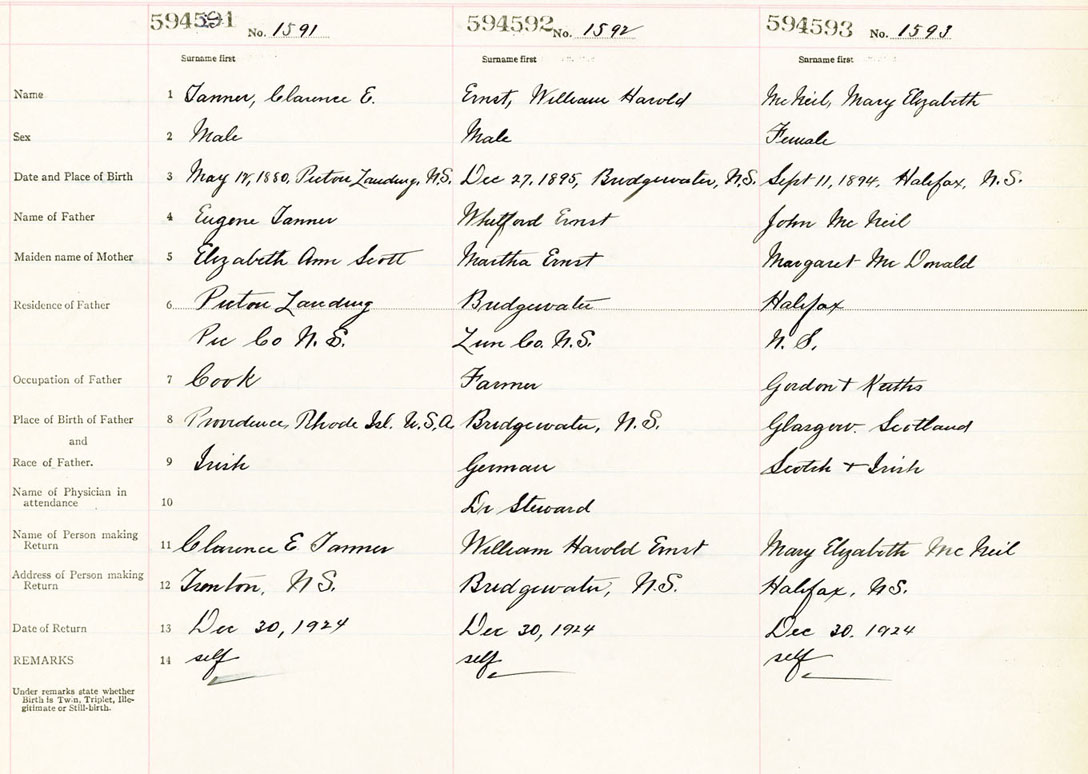 594591 No. 1591 594592 No. 1592 594593 No. 1593
Surname first Surname first Surname first
Name 1 Tanner, Clarence E. Ernst, William Harold McNeil, Mary Elizabeth
Sex 2 Male Male Female
Date and Place of Birth 3 May 18, 1880, Pictou Landing, N.S. Dec 27, 1895, Bridgewater, N.S. Sept 11, 1894, Halifax, N.S.
Name of Father 4 Eugene Tanner Whitford Ernst John McNeil
Maiden name of Mother 5 Elizabeth Ann Scott Martha Ernst Margaret McDonald
Residence of Father 6 Pictou Landing Bridgewater Halifax
Pic Co N.S. Lun Co. N.S. N.S.
Occupation of Father 7 Cook Farmer Gordon + Keiths
Place of Birth of Father 8 Providence, Rhode Isl. U.S.A. Bridgewater, N.S. Glasgow. Scotland
and
Race of Father. 9 Irish German Scotch + Irish
Name of Physician in
attendance 10 Dr Steward
Name of Person making
Return 11 Clarence E Tanner William Harold Ernst Mary Elizabeth McNeil
Address of Person making
Return 12 Trenton, NS. Bridgewater, N.S. Halifax, NS.
Date of Return 13 Dec 30, 1924 Dec 30, 1924 Dec 30. 1924
REMARKS 14 self self self
Under remarks state whether
Birth is Twin, Triplet, Ille-
gitimate or Still-birth.